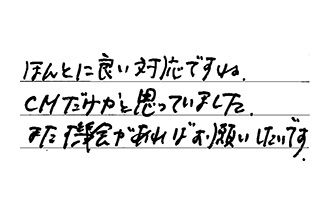 ほんとに良い対応ですね。
CMだけかと思っていました。
また機会があればお願いしたいです